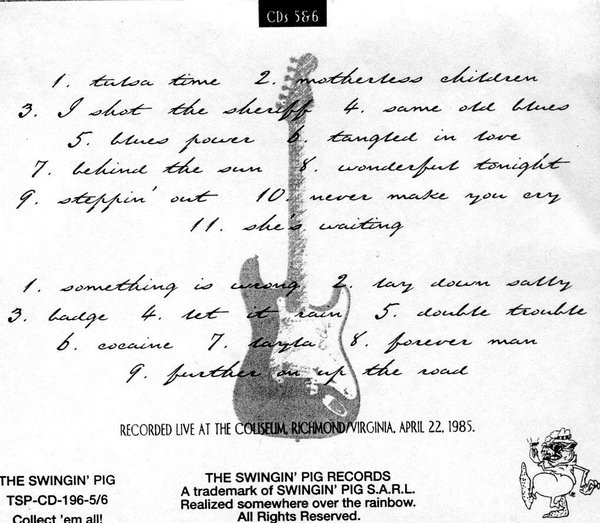 CDs 5&6
1. tulsa time 2. motherless children
3. I shot the sheriff 4. same old blues
5. blues power 6. tangled in love
7. behind the sun 8. wonderful tonight
9. steppin' out 10. never make you cry
11. she's waiting
1. something is wrong 2. lay down sally
3. badge 4. let it rain 5. double trouble
6. cocaine 7. layla 8. forever man
9. further on up the road
RECORDED LIVE AT THE COLISEUM, RICHMOND/VIRGINIA, APRIL 22, 1985.
THE SWINGIN' PIG
TSP-CD-196-5/6
Collect 'em all!
THE SWINGIN' PIG RECORDS
A trademark of SWINGIN' PIG S.A.R.L.
Realized somewhere over the rainbow.
All Rights Reserved.